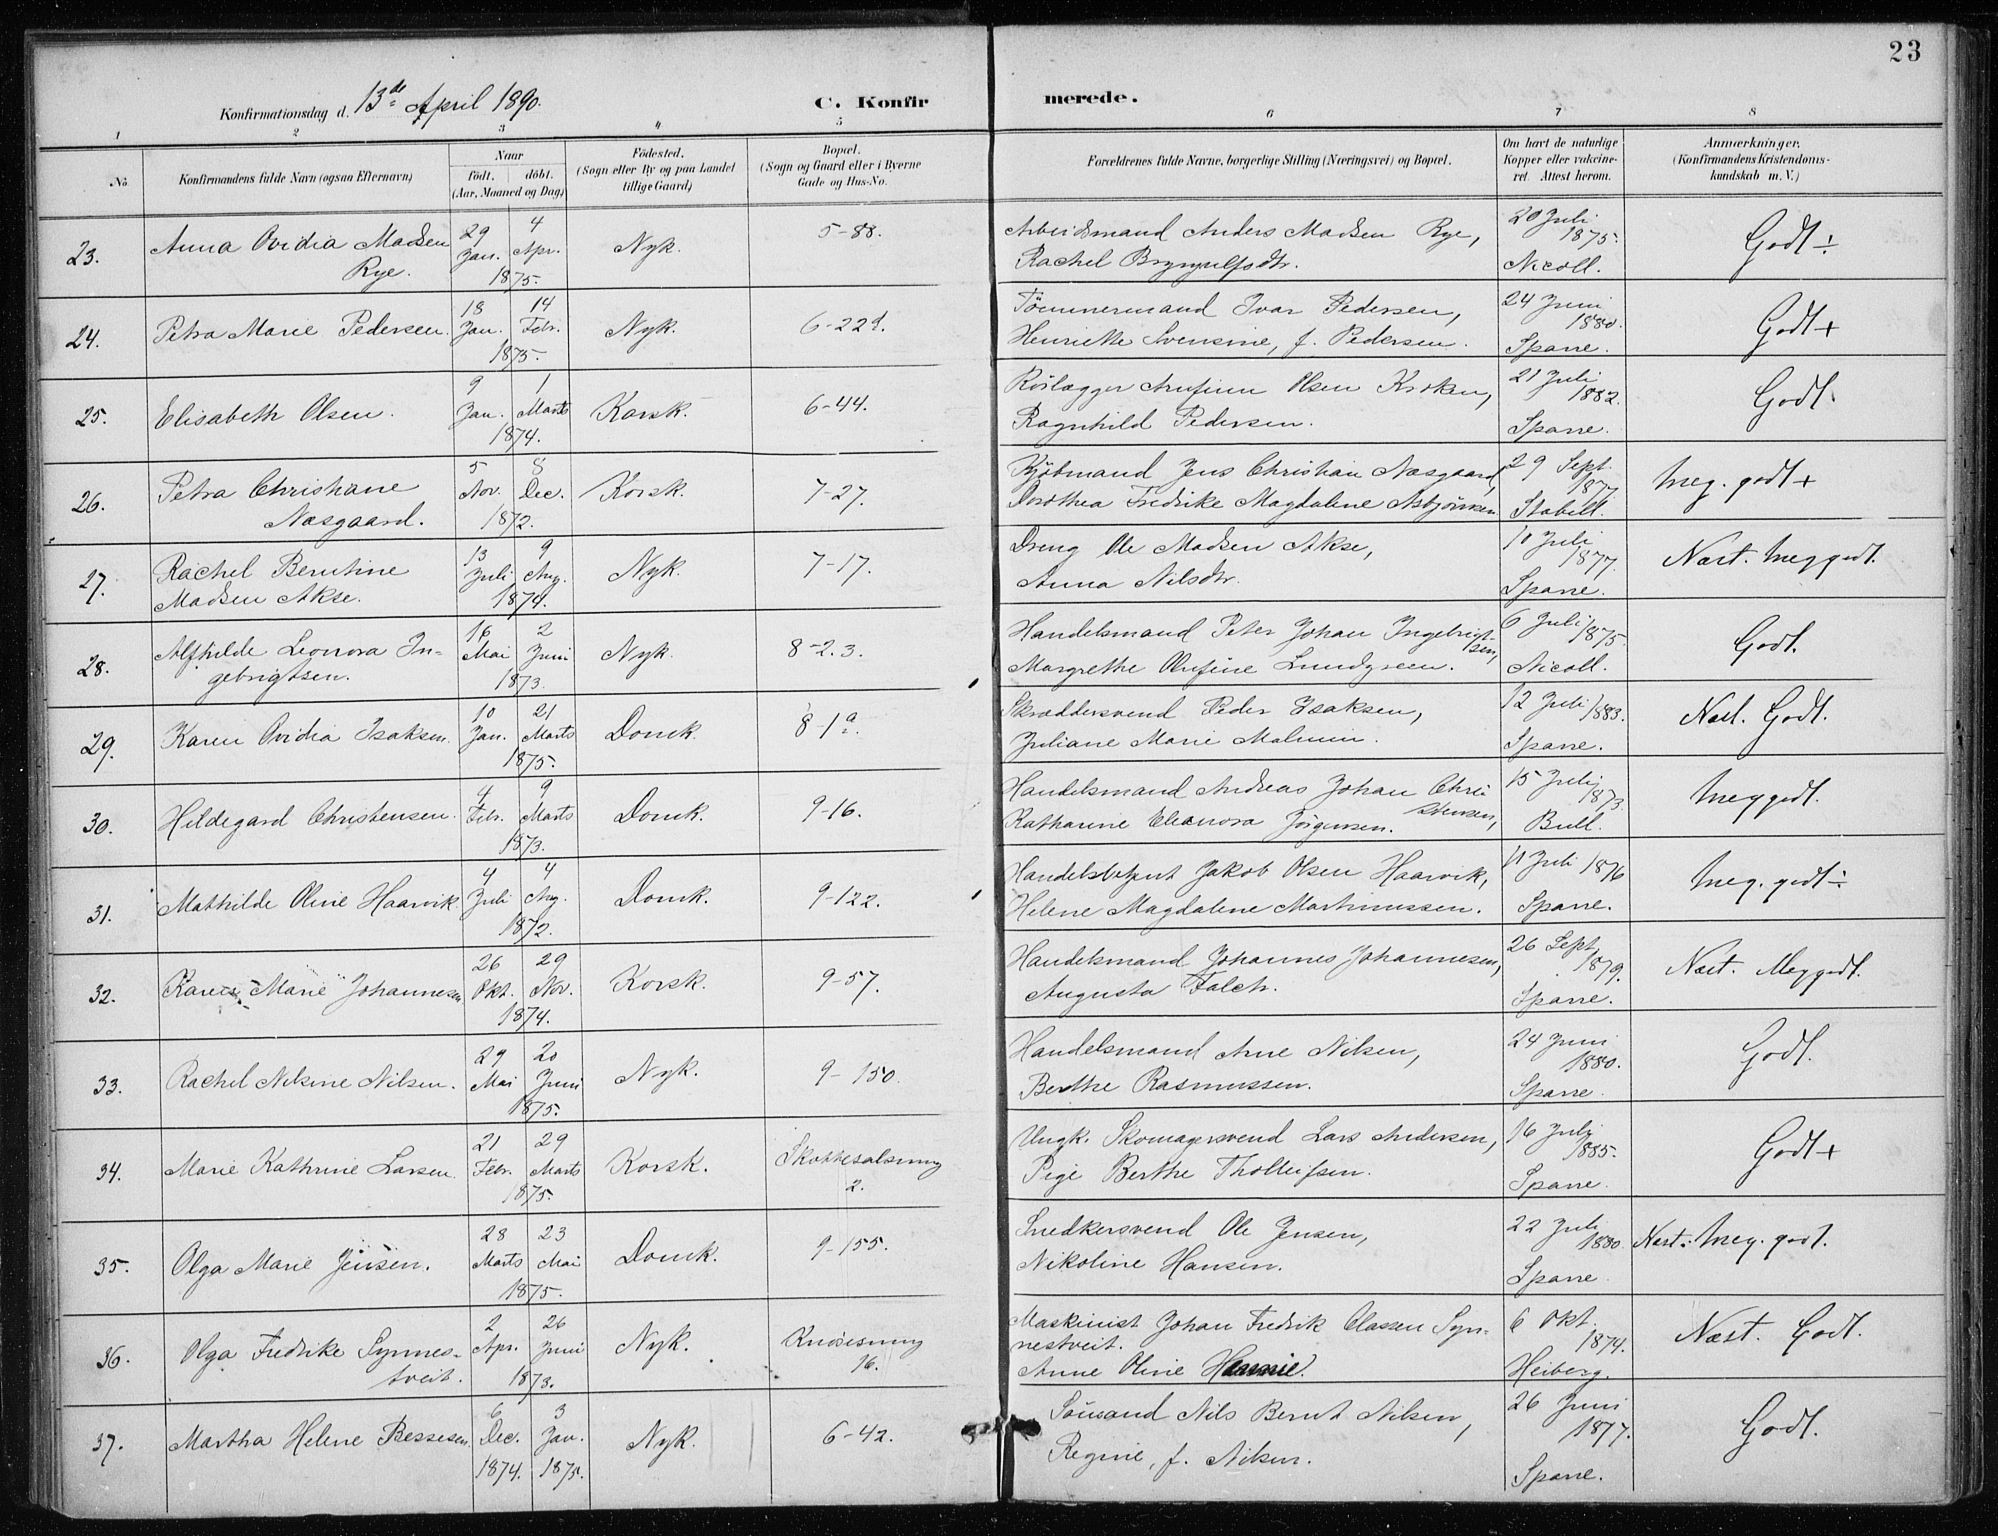 23
Konfirmationsdag d. 13de April 1890.
C. Konfirmerede.
1 2 3 4 5 6 7 8
No. Konfirmandens fulde Navn (ogsaa Efternavn) Naar født. døbt. (Aar, Maaned og Dag) Födested. (Sogn eller By og paa Landet tillige Gaard) Bopæl. (Sogn og Gaard eller i Byerne Gade og Hus-No. Forældrenes fulde Navne, borgerlige Stilling (Næringsvei) og Bopæl. Om havt de naturlige Kopper eller vakcineret. Attest herom. Anmærkninger. (Konfirmandens Kristendomskundskab m. V.)
23. Anna Ovidia Madsen Rye. 29 Jan. 4 Apr. 1875. Nyk. 5-88. Arbeidsmand Anders Madsen Rye, Rachel Brynyulfsdtr. 20 Juli 1875. Nicoll. Godt ÷
24. Petra Marie Pedersen. 18 Jan. 14 Febr. 1875. Nyk. 6-22 Tømmermand Ivar Pedersen, Henriette Svensine, f. Pedersen. 24 Juni 1880. Sparre. Godt +
25. Elisabeth Olsen. 9 Jan. 1 Marts 1874. Korsk. 6-44. Rørlægger Arnfinn Olsen Kroken, Ragnhild Pedersen. 21 Juli 1882. Sparre. Godt.
26. Petra Christiane Næsgaard. 5 Nov. 8 Dec. 1872. Korsk. 7-27. Kjøbmand Jens Christian Næsgaard, Dorothea Fredrike Magdalene Asbjørnsen 29 Sept. 1877. Stabell. Meg. godt +
27. Rachel Berntine Madsen Akse. 13 Juli 9 Aug. 1874. Nyk. 7-17. Dreng Ole Madsen Akse, Anna Nilsdtr. 10 Juli 1877. Sparre. Næst. Meg godt.
28. Alfhilde Leonora Ingebrigtsen. 16 Mai 2 Juni 1873. Nyk. 8-2.3. Handelsmand Peter Johan Ingebrigtsen, Margrethe Olufine Lundgreen. 6 Juli 1875. Nicoll. Godt.
29. Karen Ovidia Isaksen. 10 Jan. 21 Marts 1875. Domk. 8-1a. Skræddersvend Peder Isaksen, Juliane Marie Malmin. 12 Juli 1883. Sparre. Næst. Godt.
30. Hildegard Christensen. 4 Febr. 9 Marts 1873. Domk. 9-16. Handelsmand Andreas Johan Christensen, Katharine Eleanora Jørgensen. 15 Juli 1873. Bull. Meg godt.
31. Mathilde Oline Haarvik. 4 Juli 4 Aug. 1872. Domk. 9-122. Handelsbetjent Jakob Olsen Haarvik, Helene Magdalene Martinussen. 11 Juli 1876 Sparre. Meg. godt ÷
32. Karen Marie Johannesen 26 Okt. 29 Nov. 1874. Korsk. 9-57. Handelsmand Johannes Johannesen, Augusta Falch. 26 Sept. 1879. Sparre. Næst. Meg godt.
33. Rachel Nilsine Nilsen. 29 Mai 20 Juni 1875. Nyk. 9-150. Handelsmand Arne Nilsen, Berthe Rasmussen. 24 Juni 1880. Sparre. Godt.
34. Marie Kathrine Larsen. 21 Febr. 29 Marts 1875. Korsk. Skottesalsmug 2. Ungk. Skomagersvend Lars Andersen, Pige Berthe Thollefsen. 16 Juli 1885. Sparre. Godt +
35. Olga Marie Jensen. 28 Marts 23 Mai 1875. Domk. 9-155. Snedkersvend Ole Jensen, Nikoline Hansen. 22 Juli 1880. Sparre. Næst. Meg. godt.
36. Olga Fredrike Synnestveit. 2 Apr. 26 Juni 1873. Nyk. Knøsesmug 16. Maskinist Johan Fredrik Classen Synnestveit. Anne Oline 6 Okt. 1874. Heiberg. Næst. Godt.
37. Martha Helene Bessesen. 6 Dec. 1874. 3 Jan. 1875. Nyk. 6-42. Sømand Nils Bernt Nilsen, Regine, f. Nilsen. 26 Juni 1877. Sparre. Godt.